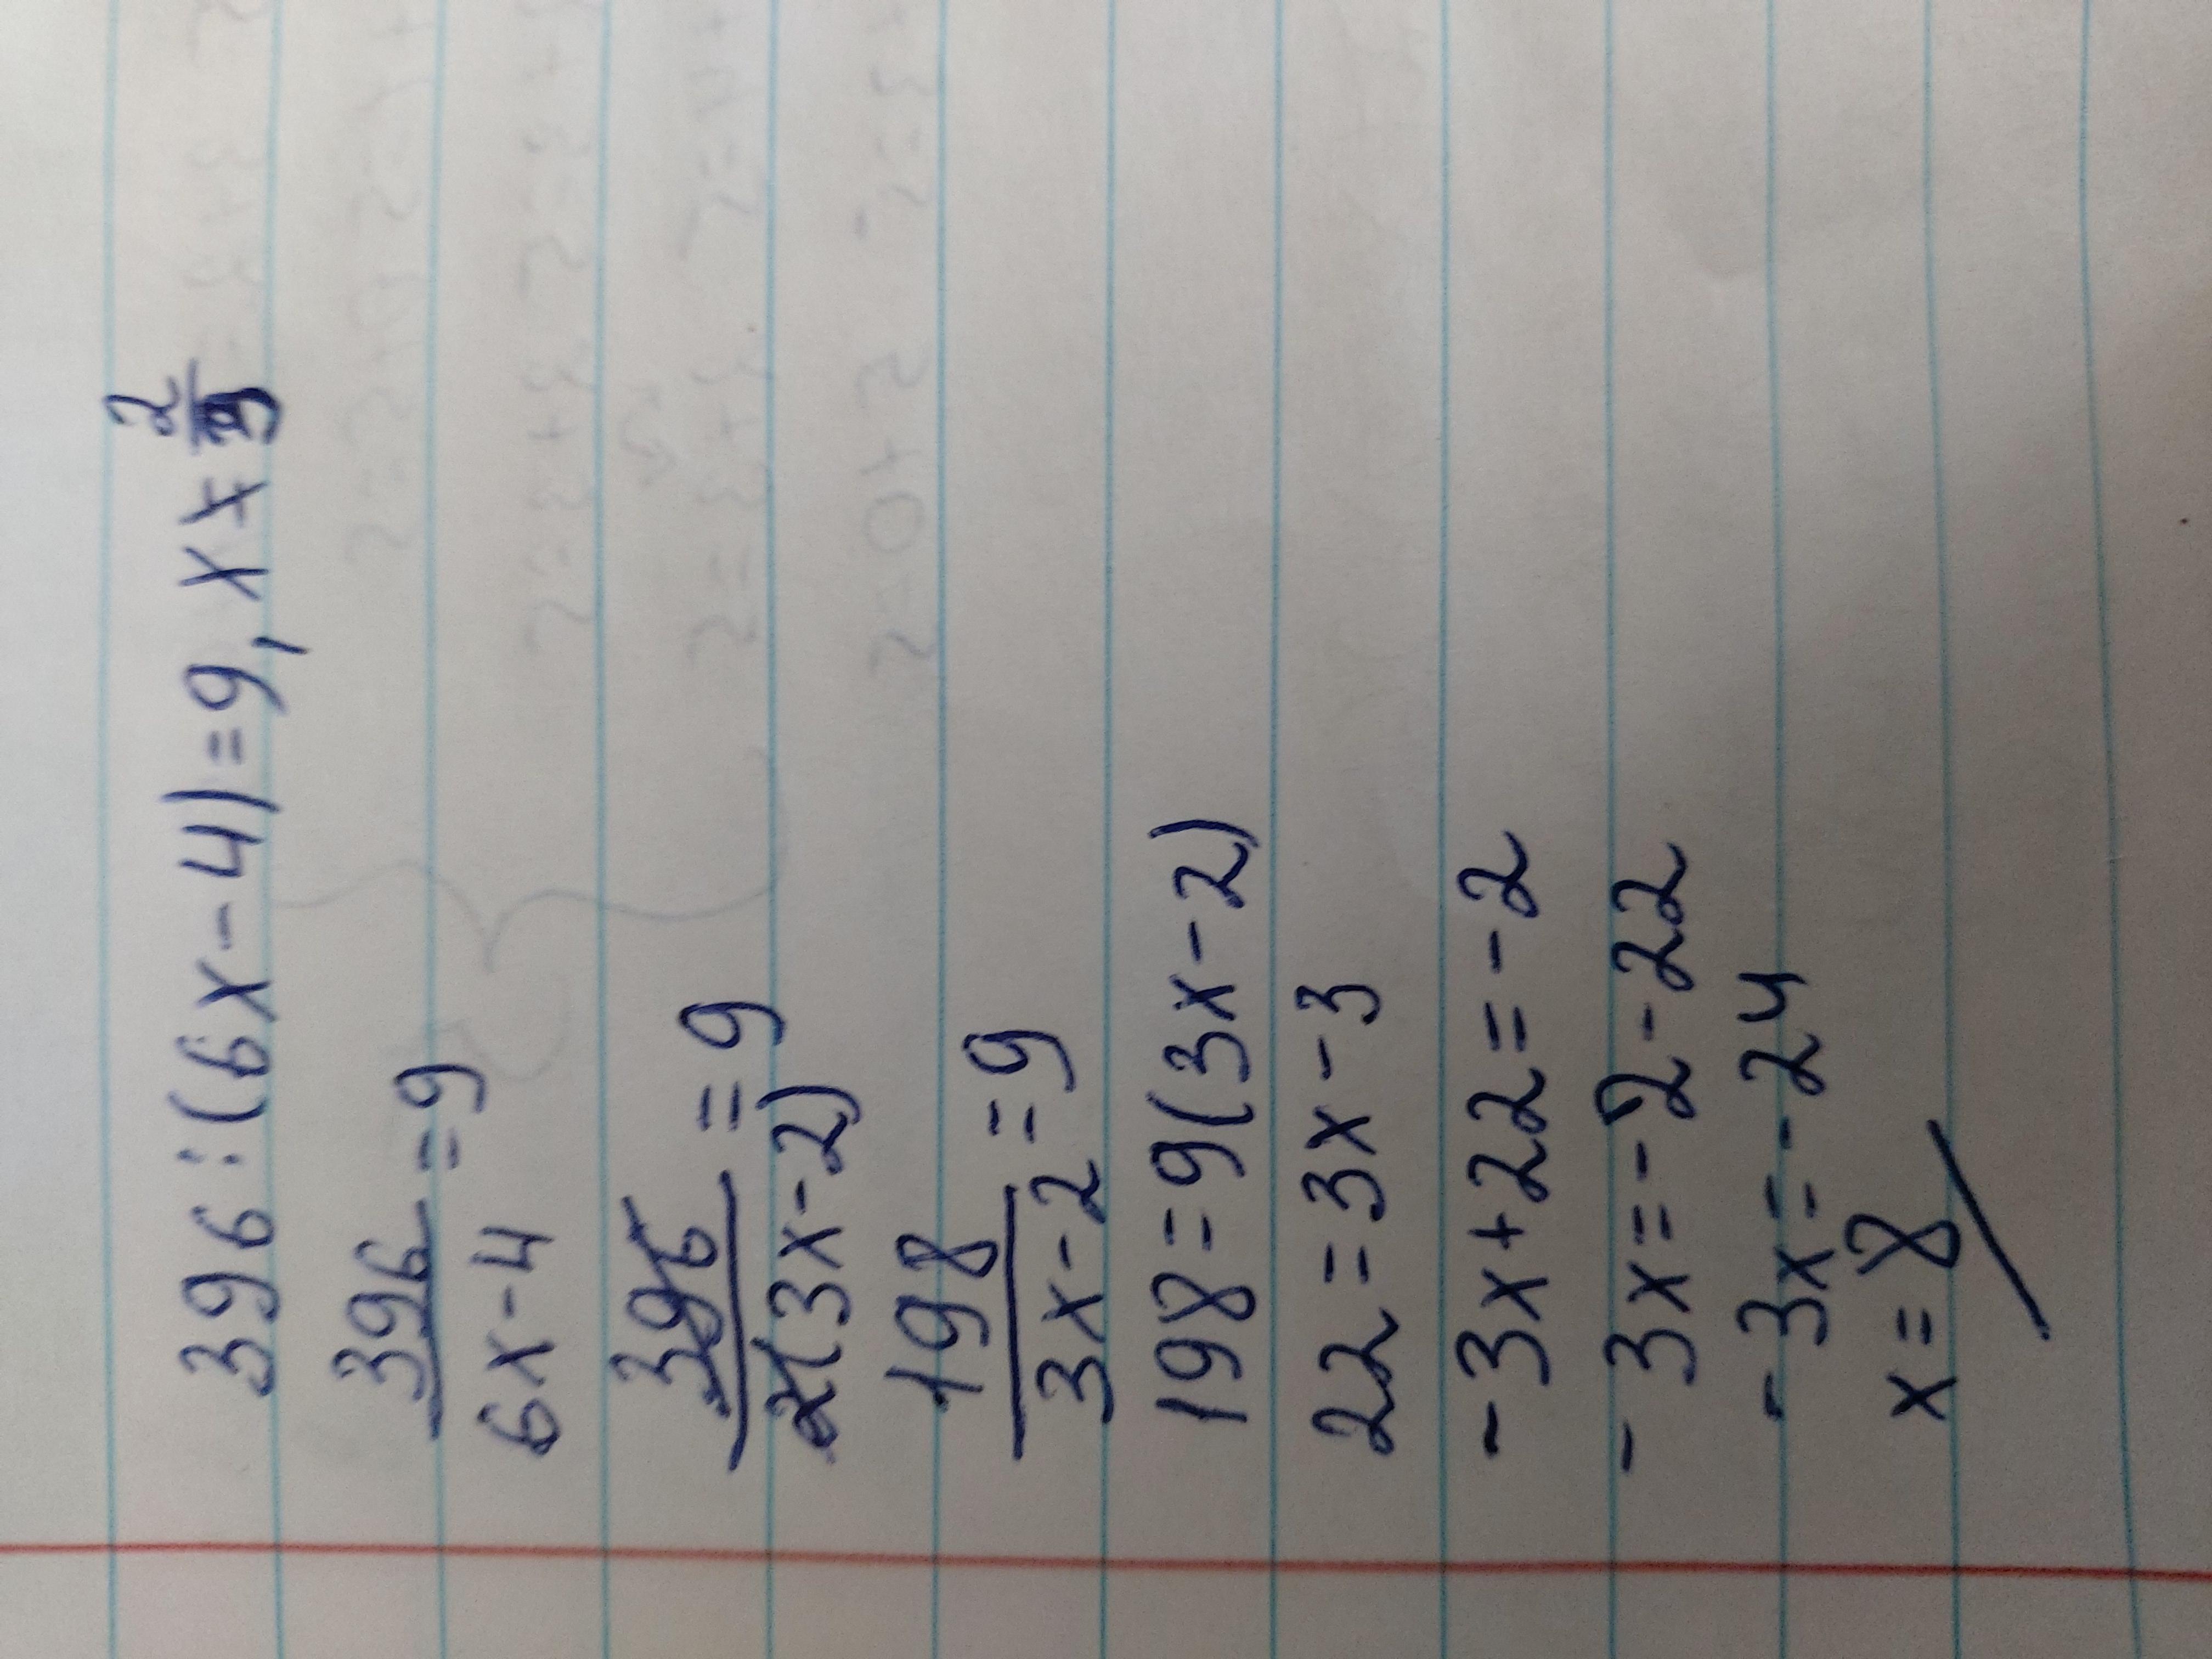 396:(6x-4)=9, x≠2/3
396/6x-4=9
396/2(3x-2)=9
198/3x-2=9
198=9(3x-2)
22=3x-3
-3x+22=-2
-3x=-2-22
-3x=-24
x=8